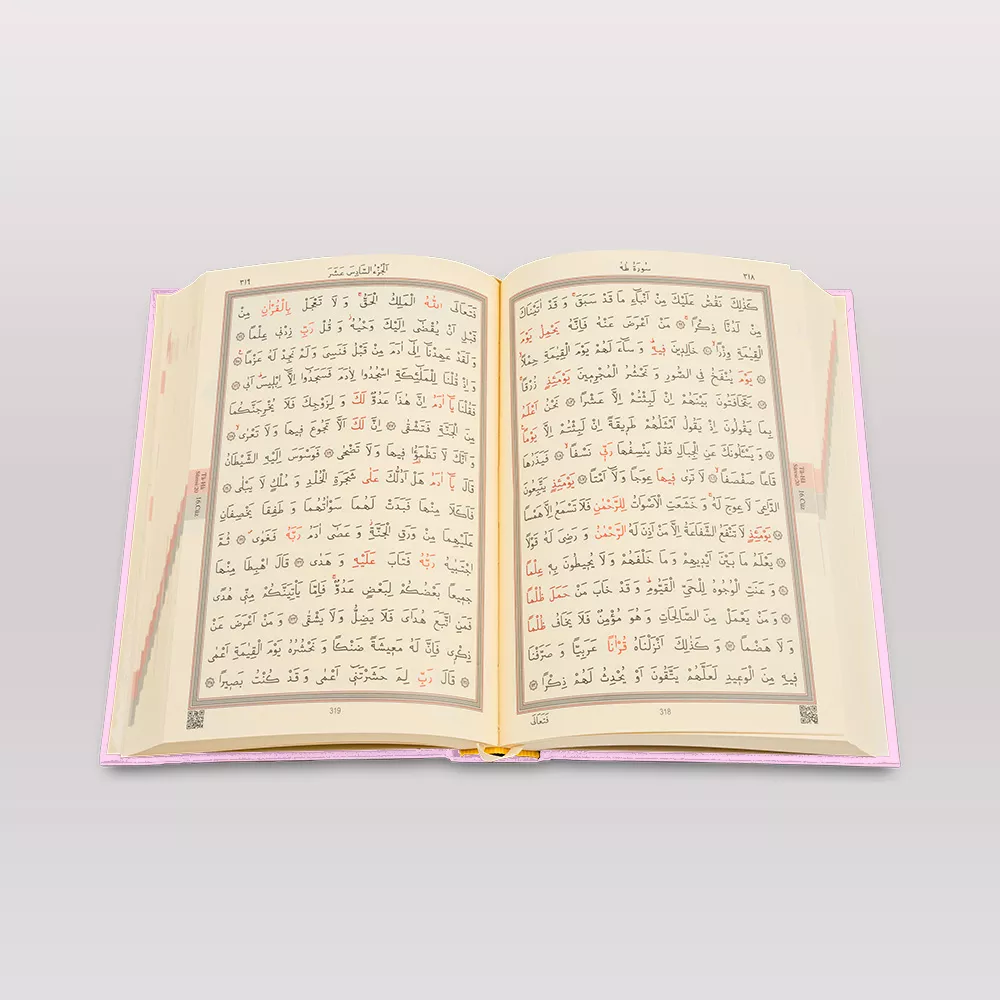 سُورَةُ طٰهٰ ٣١٨
كَذٰلِكَ نَقُصُّ عَلَيْكَ مِنْ اَنْبَٓاءِ مَا قَدْ سَبَقَۚ وَقَدْ اٰتَيْنَاكَ
مِنْ لَدُنَّا ذِكْرًاۚ ۝ مَنْ اَعْرَضَ عَنْهُ فَاِنَّهُ يَحْمِلُ يَوْمَ
الْقِيٰمَةِ وِزْرًاۙ ۝ خَالِدِينَ فِيهِۜ وَسَٓاءَ لَهُمْ يَوْمَ الْقِيٰمَةِ حِمْلًاۙ
۝ يَوْمَ يُنْفَخُ فِي الصُّورِ وَنَحْشُرُ الْمُجْرِمِينَ يَوْمَئِذٍ زُرْقًاۚ
۝ يَتَخَافَتُونَ بَيْنَهُمْ اِنْ لَبِثْتُمْ اِلَّا عَشْرًا ۝ نَحْنُ اَعْلَمُ
بِمَا يَقُولُونَ اِذْ يَقُولُ اَمْثَلُهُمْ طَرِيقَةً اِنْ لَبِثْتُمْ اِلَّا يَوْمًا۟
۝ وَيَسْـَٔلُونَكَ عَنِ الْجِبَالِ فَقُلْ يَنْسِفُهَا رَبّ۪ي نَسْفًاۙ ۝ فَيَذَرُهَا
قَاعًا صَفْصَفًاۙ ۝ لَا تَرٰى فِيهَا عِوَجًا وَلَٓا اَمْتًاۜ ۝ يَوْمَئِذٍ يَتَّبِعُونَ
الدَّاعِيَ لَا عِوَجَ لَهُۚ وَخَشَعَتِ الْاَصْوَاتُ لِلرَّحْمٰنِ فَلَا تَسْمَعُ اِلَّا هَمْسًا
۝ يَوْمَئِذٍ لَا تَنْفَعُ الشَّفَاعَةُ اِلَّا مَنْ اَذِنَ لَهُ الرَّحْمٰنُ وَرَضِيَ لَهُ قَوْلًا
۝ يَعْلَمُ مَا بَيْنَ اَيْدِيهِمْ وَمَا خَلْفَهُمْ وَلَا يُحِيطُونَ بِهِ عِلْمًا
۝ وَعَنَتِ الْوُجُوهُ لِلْحَيِّ الْقَيُّومِۜ وَقَدْ خَابَ مَنْ حَمَلَ ظُلْمًا
۝ وَمَنْ يَعْمَلْ مِنَ الصَّالِحَاتِ وَهُوَ مُؤْمِنٌ فَلَا يَخَافُ ظُلْمًا
وَلَا هَضْمًا ۝ وَكَذٰلِكَ اَنْزَلْنَاهُ قُرْاٰنًا عَرَبِيًّا وَصَرَّفْنَا
فِيهِ مِنَ الْوَعِيدِ لَعَلَّهُمْ يَتَّقُونَ اَوْ يُحْدِثُ لَهُمْ ذِكْرًا ۝
318
فَتَعَالَى
Tâ-Hâ
Sûresi 20
16.Cüz
اَلْجُزْءُ السَّادِسَ عَشَرَ ٣١٩
فَتَعَالَى اللّٰهُ الْمَلِكُ الْحَقُّۚ وَلَا تَعْجَلْ بِالْقُرْاٰنِ مِنْ
قَبْلِ اَنْ يُقْضٰٓى اِلَيْكَ وَحْيُهُۘ وَقُلْ رَبِّ زِدْنِي عِلْمًا ۝
وَلَقَدْ عَهِدْنَٓا اِلٰٓى اٰدَمَ مِنْ قَبْلُ فَنَسِيَ وَلَمْ نَجِدْ لَهُ عَزْمًا۟ ۝
وَاِذْ قُلْنَا لِلْمَلٰٓئِكَةِ اسْجُدُوا لِاٰدَمَ فَسَجَدُٓوا اِلَّٓا اِبْلِيسَۜ اَبٰى ۝
فَقُلْنَا يَٓا اٰدَمُ اِنَّ هٰذَا عَدُوٌّ لَكَ وَلِزَوْجِكَ فَلَا يُخْرِجَنَّكُمَا
مِنَ الْجَنَّةِ فَتَشْقٰى ۝ اِنَّ لَكَ اَلَّا تَجُوعَ فِيهَا وَلَا تَعْرٰىۙ ۝
وَاَنَّكَ لَا تَظْمَؤُ۬ا فِيهَا وَلَا تَضْحٰى ۝ فَوَسْوَسَ اِلَيْهِ الشَّيْطَانُ
قَالَ يَٓا اٰدَمُ هَلْ اَدُلُّكَ عَلٰى شَجَرَةِ الْخُلْدِ وَمُلْكٍ لَا يَبْلٰى ۝
فَاَكَلَا مِنْهَا فَبَدَتْ لَهُمَا سَوْاٰتُهُمَا وَطَفِقَا يَخْصِفَانِ
عَلَيْهِمَا مِنْ وَرَقِ الْجَنَّةِۘ وَعَصٰٓى اٰدَمُ رَبَّهُ فَغَوٰىۖ ۝ ثُمَّ
اجْتَبٰيهُ رَبُّهُ فَتَابَ عَلَيْهِ وَهَدٰى ۝ قَالَ اهْبِطَا مِنْهَا
جَمِيعًا بَعْضُكُمْ لِبَعْضٍ عَدُوٌّۚ فَاِمَّا يَأْتِيَنَّكُمْ مِنِّي هُدًى
فَمَنِ اتَّبَعَ هُدَايَ فَلَا يَضِلُّ وَلَا يَشْقٰى ۝ وَمَنْ اَعْرَضَ عَنْ
ذِكْرِي فَاِنَّ لَهُ مَعِيشَةً ضَنْكًا وَنَحْشُرُهُ يَوْمَ الْقِيٰمَةِ اَعْمٰى
۝ قَالَ رَبِّ لِمَ حَشَرْتَنِٓي اَعْمٰى وَقَدْ كُنْتُ بَصِيرًا ۝
319
Tâ-Hâ
Sûresi 20
16.Cüz